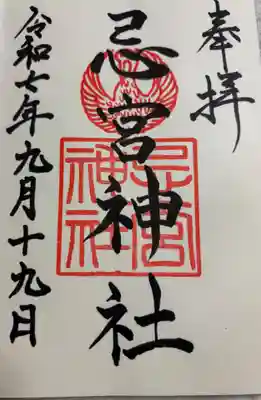 奉拝
忌宮神社
忌宮
神社
令和七年九月十九日